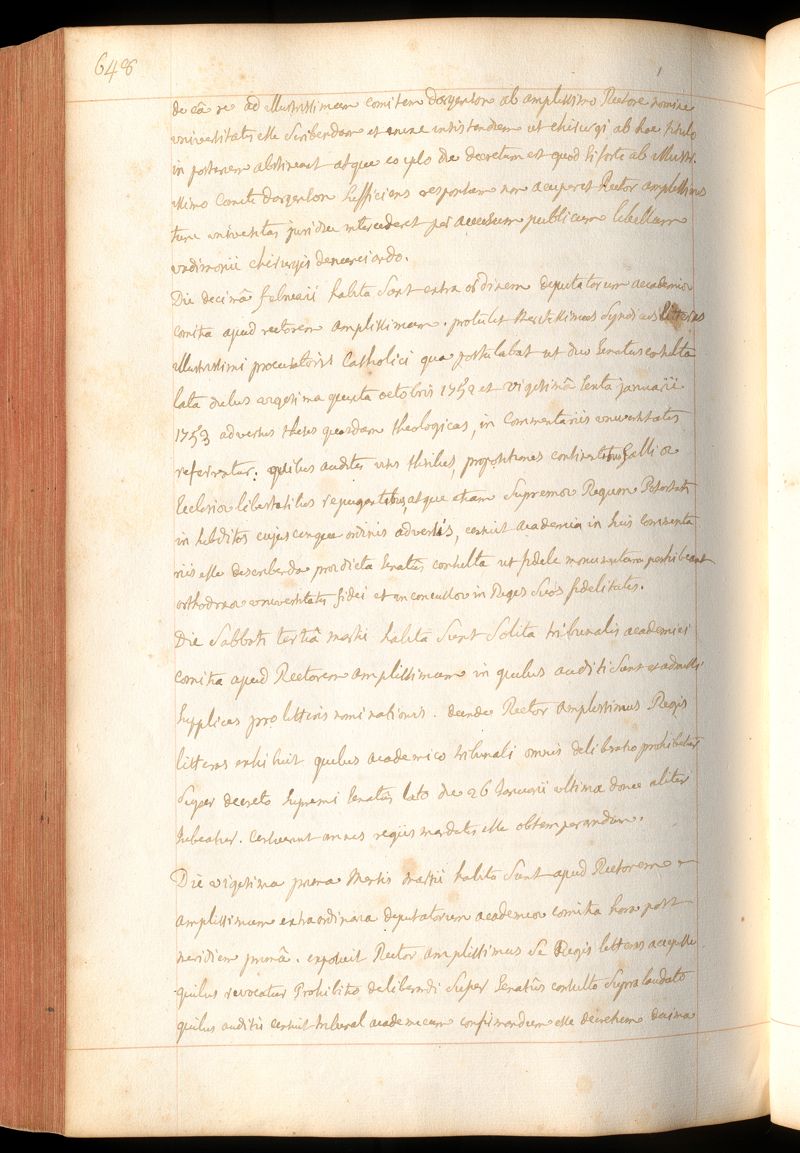 648
de eâ re ad illustrissimum comitem dargenson ab amplissimo Rectore nomine
universitatis esse scribendum et enixe insistendum ut chirurgi ab hoc titulo
in posterum abstineant atque eo ipso die decretum est quod si forte ab illustri-
ssimo Comite dargenson sufficiens responsum non acciperet Rector amplissimus
tunc universitas juridice intercederet per accensum publicum libellum
vadimonii chirurgis denunciando.
Die decimâ februarii habita sunt extra ordinem deputatorum academiæ
comitia apud rectorem amplissimum. protulit Syndicus litteras
illustrissimi procuratoris Catholici qua postulabat ut duo senatus consulta
lata diebus vigesima quinta octobris 1752 et vigesimâ sexta januarii
1753 adversus theses quasdam theologicas, in commentariis universitatis
referrentur; quibus auditis visis thesibus, propositiones continentibus Gallicæ
Ecclesiæ libertatibus repugnantibus, atque etiam supremæ Regum Potestati
in subditos cujuscunque ordinis adversis, censuit academia in suis commenta
riis esse describenda prædicta senatus consulta ut fidele monumentum perhibeant
orthodoxæ universitatis fidei et inconcussæ in Reges suos fidelitatis.
Die Sabbati tertiâ martii habita sunt Solita tribunalis academici
comitia apud Rectorem amplissimum in quibus auditi sunt et admissi
supplices pro litteris nominationis. deinde Rector amplissimus Regis
litteras exhibuit quibus academico tribunali omnis deliberatio prohibetur
super decreto supremi senatus lato die 26 Januarii ultima donec aliter
jubeatur. censuerunt omnes regiis mandatis esse obtemperandum.
Die vigesima prima Martis martii habita sunt apud Rectorem
amplissimum extraordinaria deputatorum academiæ comitia hora post
meridiem primâ. exposuit Rector amplissimus se Regis litteras accepisse
quibus revocatur Prohibitio deliberandi super senatûs consulto supra laudato
quibus auditis censuit tribunal academicum confirmandum esse decretum decima